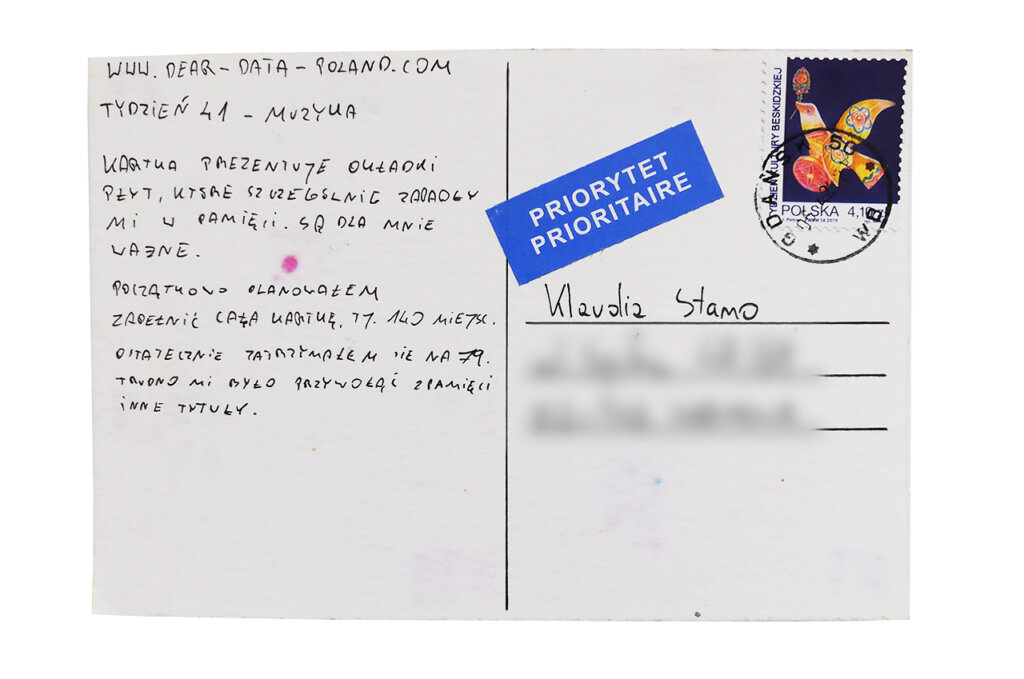 WWW.DEAR-DATA-POLAND.COM
TYDZIEŃ 41 - MUZYKA
KARTKA PREZENTUJE OKŁADKI
PŁYT, KTÓRE SZCZEGÓLNIE ZAPADŁY
MI W PAMIĘCI. SĄ DLA MNIE
WAŻNE.
POCZĄTKOWO PLANOWAŁEM
ZAPEŁNIĆ CAŁĄ KARTKĘ, TJ. 140 MIEJSC.
OSTATECZNIE ZATRZYMAŁEM SIĘ NA 79.
TRUDNO MI BYŁO PRZYWOŁAĆ Z PAMIĘCI
INNE TYTUŁY.
PRIORYTET
PRIORITAIRE
TYDZIEŃ KULTURY BESKIDZKIEJ
POLSKA 4,10
GDAŃSK 50
WD
Klaudia Stamo